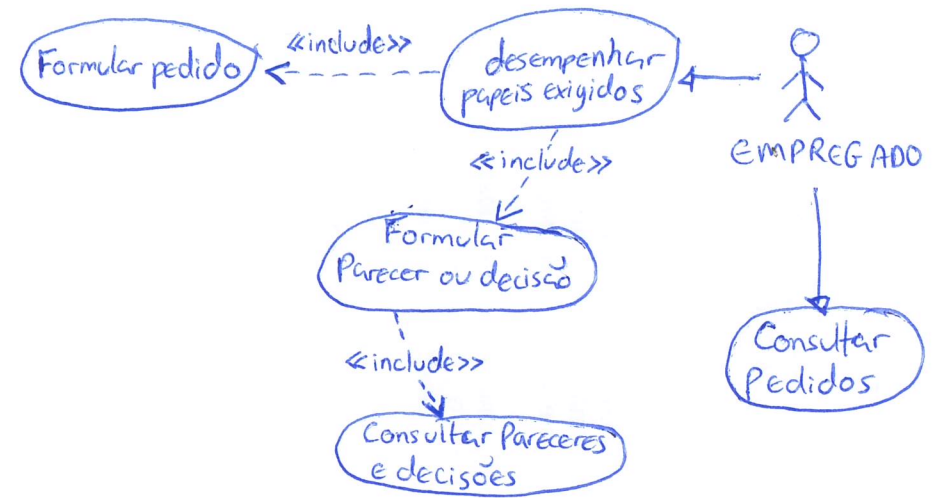 Formular pedido
«include»
desempenhar
papeis exigidos
EMPREGADO
«include»
Formular
Parecer ou decisão
«include»
Consultar Pareceres
e decisões
Consultar
Pedidos